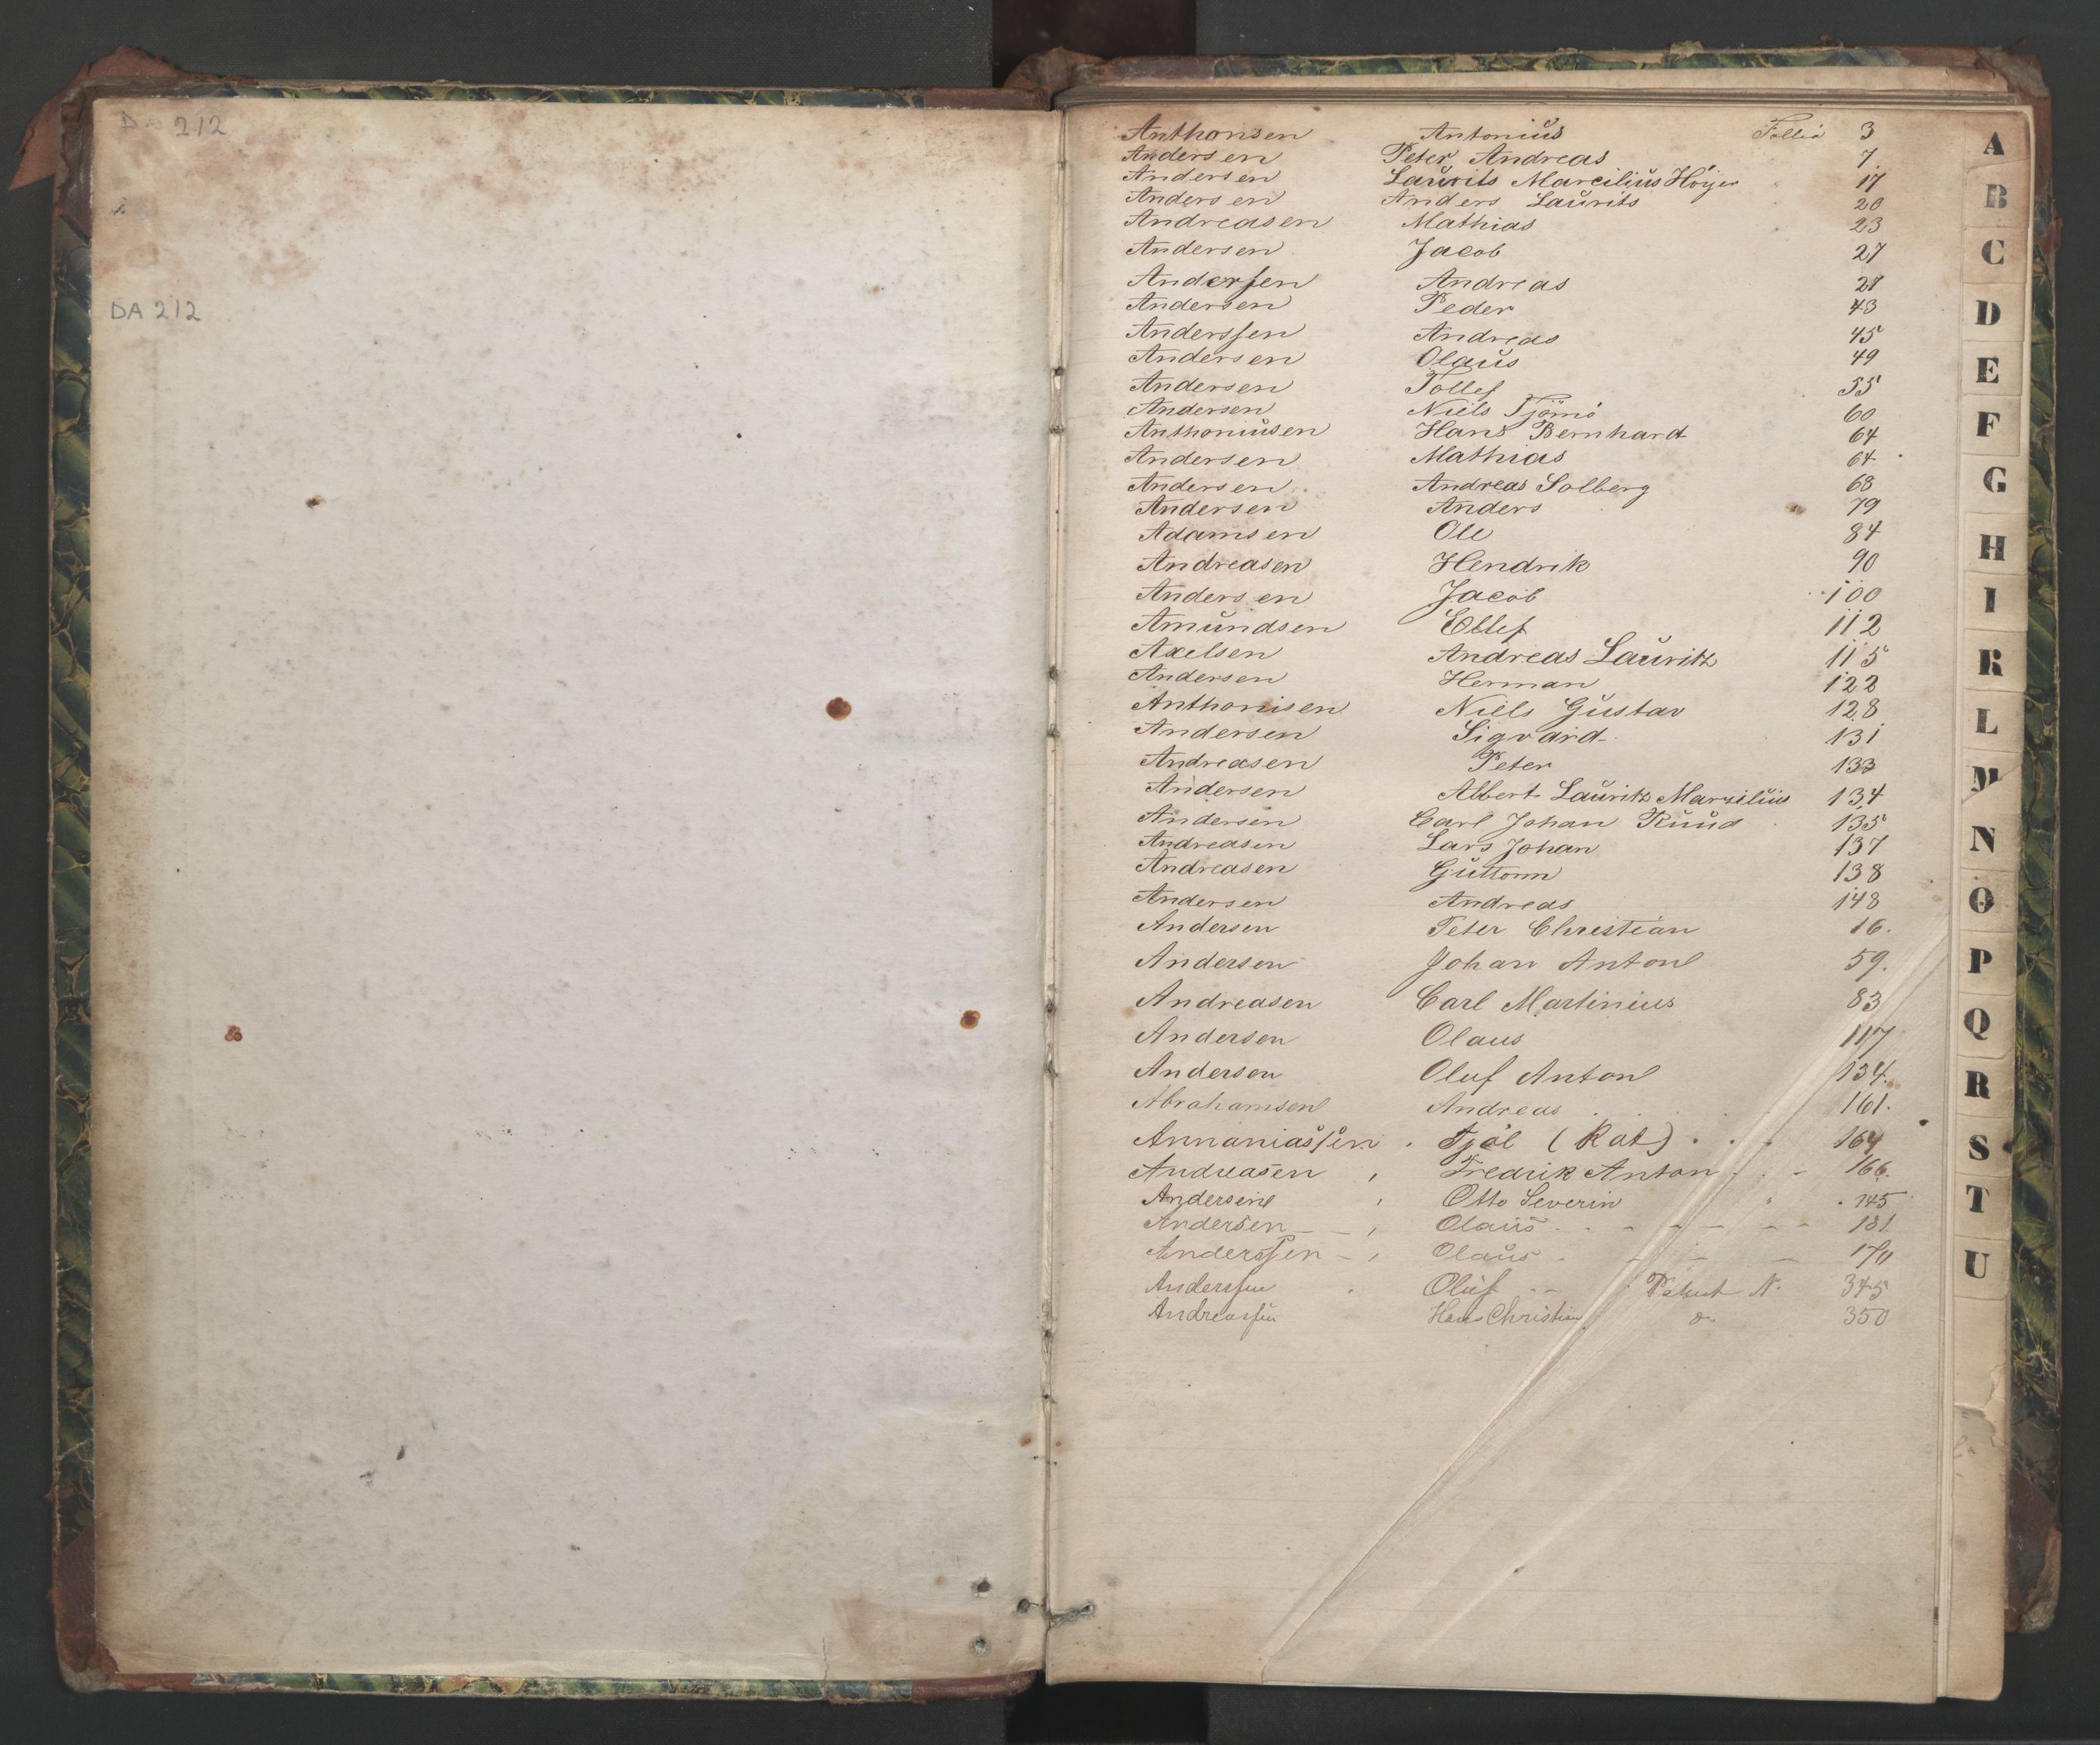 D 212
DA 212
Anthonsen Antonius Follio 3
Andersen Peter Andreas 7.
Andersen Laurits Marcilius Höyer 17
Andersen Anders Laurits 20
Andreasen Mathias 23
Andersen Jacob 27
Anderssen Andreas 27
Andersen Peder 43
Anderssen Andreas 45
Andersen Olaus 49
Andersen Tollef 55
Andersen Niels Tjömö 60
Anthoniusen Hans Bernhard 64
Andersen Mathias 64
Andersen Andreas Solberg 68
Andersen Anders 79
Adamsen Ole 84
Andreasen Hendrik 90
Andersen Jacob 100
Amundsen Ellef 112
Axelsen Andreas Lauritz 115
Andersen Herman 122
Anthonisen Niels Gustav 128
Andersen Sigvard 131
Andreasen Peter 133
Andersen Albert Lauritz Marzilius 134
Andersen Carl Johan Ruud 135
Andreasen Lars Johan 137
Andreasen Guttorm 138
Andersen Andreas 148
Andersen Peter Christian 16.
Andersen Johan Anton 59.
Andreasen Carl Martinius 83
Andersen Olaus 117
Andersen Oluf Anton 134.
Abrahamsen Andreas 161.
Annaniassen Tjöl (Rat) 164
Andreasen Fredrik Anton 166.
Andersen Otto Severin 145
Andersen Olaus 181.
Anderssen Olaus
Anderssen Oluf Patent N. 345
Andreassen Hans Christian do 350
A
B
C
D
E
F
G
H
I
K
L
M
N
O
P
Q
R
S
T
U